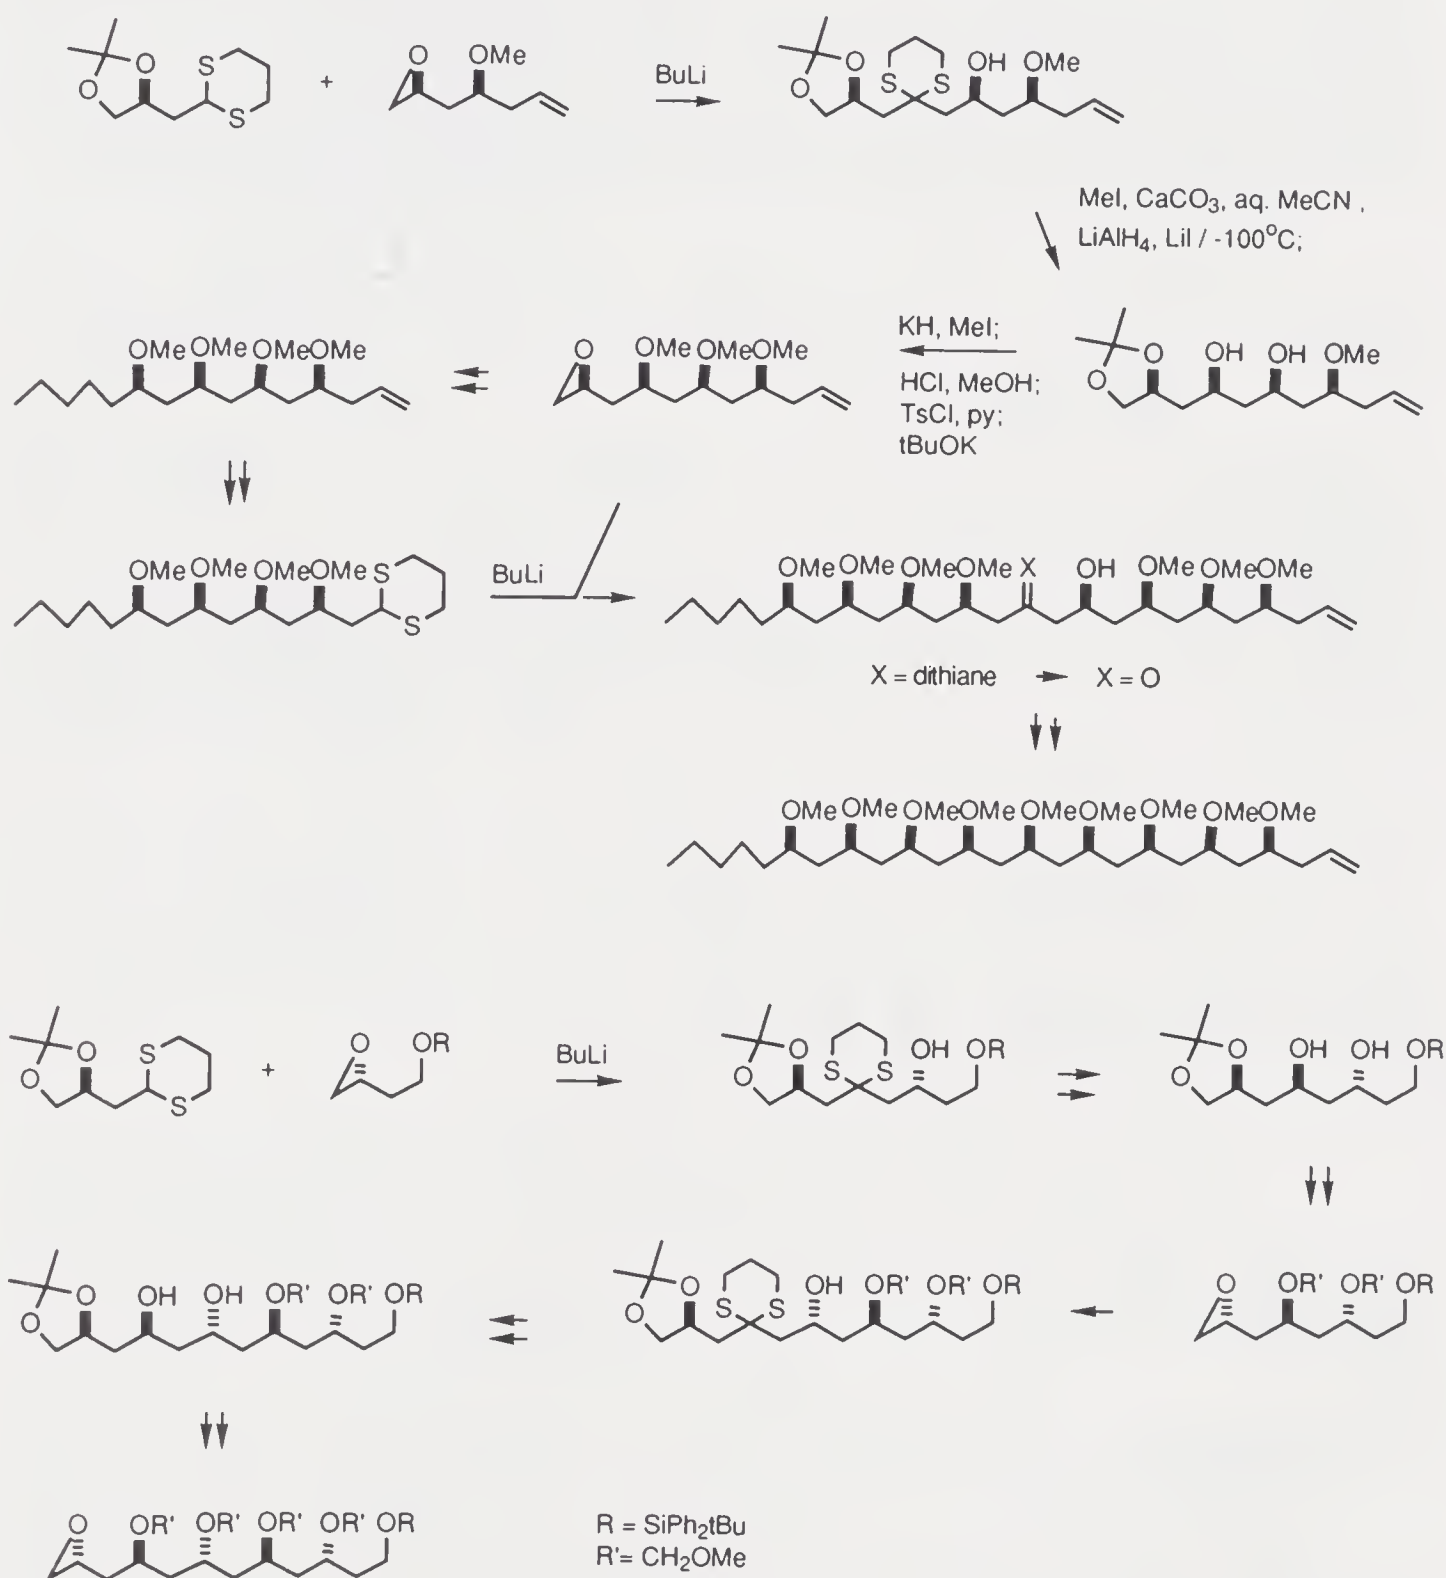 O O S S + O OMe BuLi O O S S OH OMe
MeI, CaCO3, aq. MeCN ,
LiAlH4, LiI / -100°C;
OMe OMe OMe OMe
O OMe OMe OMe
KH, MeI;
HCl, MeOH;
TsCl, py;
tBuOK
O O OH OH OMe
OMe OMe OMe OMe S S
BuLi
OMe OMe OMe OMe X OH OMe OMe OMe
X = dithiane X = O
OMe OMe OMe OMe OMe OMe OMe OMe OMe
O O S S + O OR BuLi O O S S OH OR O O OH OH OR
O O OH OH OR' OR' OR
O O S S OH OR' OR' OR
O OR' OR' OR
O OR' OR' OR' OR' OR
R = SiPh2tBu
R'= CH2OMe